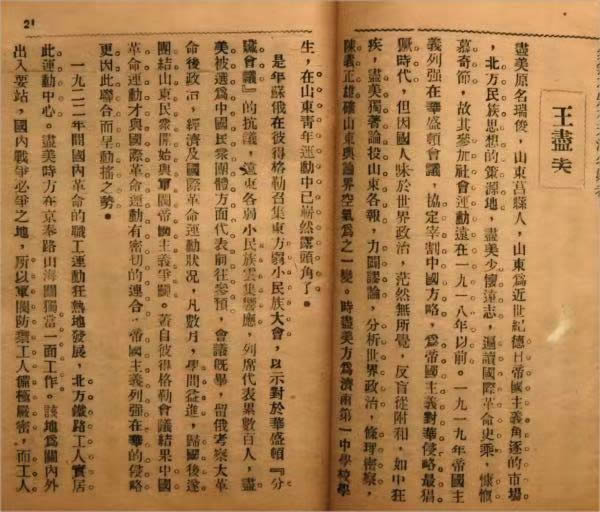 王盡美
盡美原名瑞俊，山東莒縣人，山東爲近世紀德日帝國主義角逐的市場
，北方民族思想的策源地，盡美少懷遠志，遍讀國際革命史乘，慷慨
慕奇節，故其參加社會運動遠在一九一八年以前。一九一九年帝國主
義列强在華盛頓會議，協定宰割中國方略，爲帝國主義對華侵略最猖
厥時代，但因國人昧於世界政治，茫然無所覺，反盲從附和，如中狂
疾，盡美獨著論投山東各報，力闢謬論，分析世界政治，條理密察，
陳義正雄確山東輿論界空氣爲之一變。時盡美方爲濟南第一中學校學
21
生，在山東青年運動中已嶄然露頭角了。
是年蘇俄在彼得格勒召集東方弱小民族大會，以示對於華盛頓『分
贓會議』的抗議，遠東各弱小民族雲集響應，列席代表累數百人，盡
美被選爲中國民衆團體方面代表前往參預，會議旣畢，留俄考察大革
命後政治，經濟及國際革命運動狀况，凡數月，學問益進，歸國後遂
團結山東民衆開始與軍閥帝國主義爭鬪。若自彼得格勒會議結果中國
革命運動才與國際革命運動有密切的連合，帝國主義列强在華的侵略
更因此聯合而呈動搖之勢。
一九二二年間國內革命的職工運動狂熱地發展，北方鐵路工人實居
此運動中心。盡美時方在京奉路山海關獨當一面工作。該地爲關內外
出入要站，國內戰爭必爭之地，所以軍閥防禦工人備極嚴密，而工人